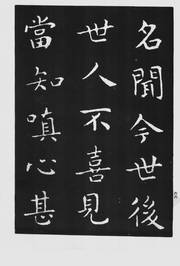 名聞今世後
世人不喜見
當知嗔心甚